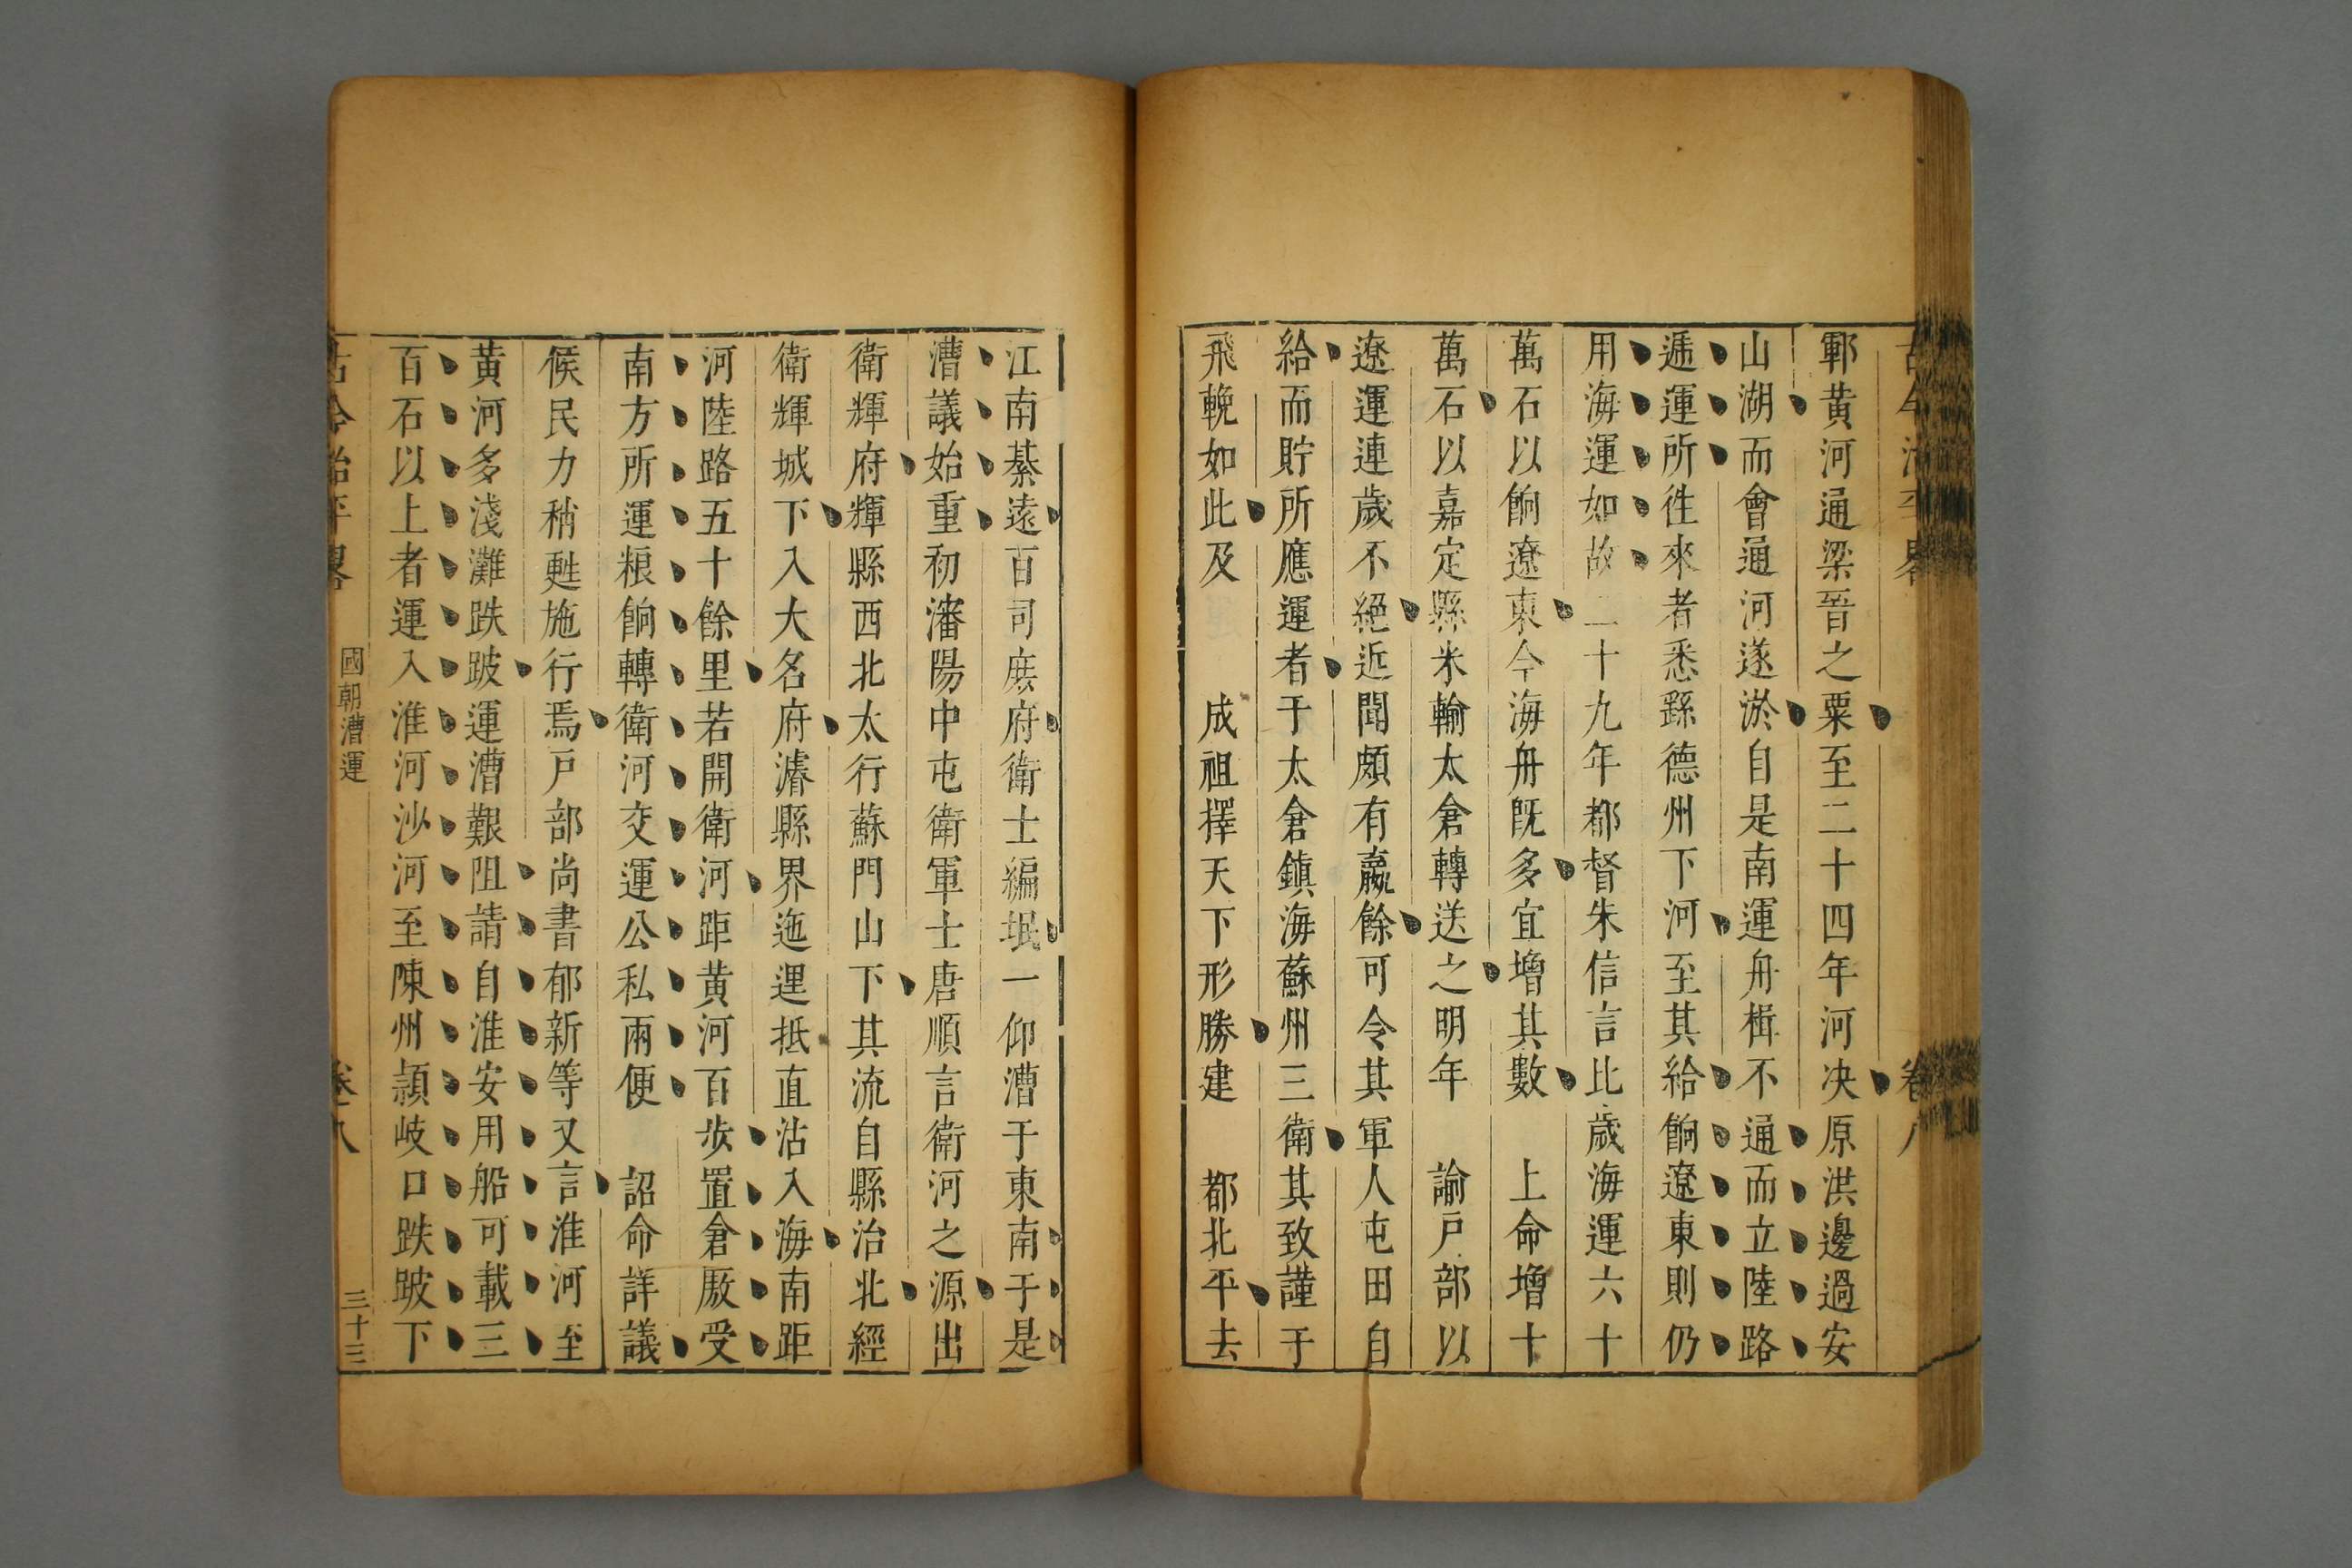 鄆黄河通梁晉之粟至二十四年河决原洪邊過安
山湖而會通河遂淤自是南運舟楫不通而立陸路
逓運所徃來者悉繇德州下河至其給餉遼東則仍
用海運如故二十九年都督朱信言比歲海運六十
萬石以餉遼東今海舟既多宜增其數 上命增十
萬石以嘉定縣米輸太倉轉送之明年 諭戸部以
遼運連歲不絕近聞頗有嬴餘可令其軍人屯田自
給而貯所應運者于太倉鎮海蘇州三衛其致謹于
飛輓如此及 成祖擇天下形勝建 都北平去
卷八
江南綦遠百司庶府衛士編氓一仰漕于東南于是
漕議始重初瀋陽中屯衛軍士唐順言衛河之源出
衛輝府輝縣西北太行蘇門山下其流自縣治北經
衛輝城下入大名府濬縣界迤逕抵直沽入海南距
河陸路五十餘里若開衛河距黄河百步置倉厫受
南方所運粮餉轉衛河交運公私兩便 詔命詳議
候民力稍甦施行焉戸部尚書郁新等又言淮河至
黄河多淺灘跌陂運漕艱阻請自淮安用船可載三
百石以上者運入淮河沙河至陳州頴岐口跌陂下
古今治平畧 國朝漕運 卷八 三十三